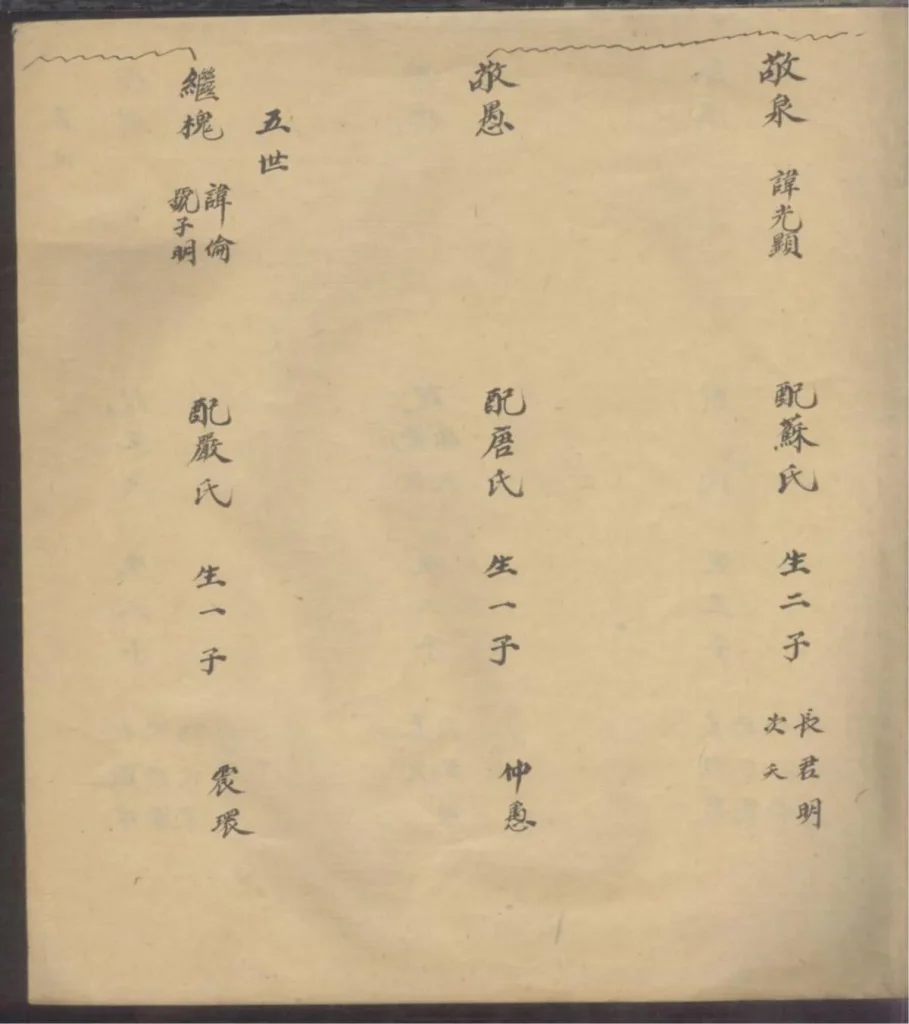 敬泉 諱光顯 配蘇氏 生二子 長君明
次夭
敬愚 配唐氏 生一子 仲愚
五世
繼槐 諱倫 配嚴氏 生一子 震環
號子明